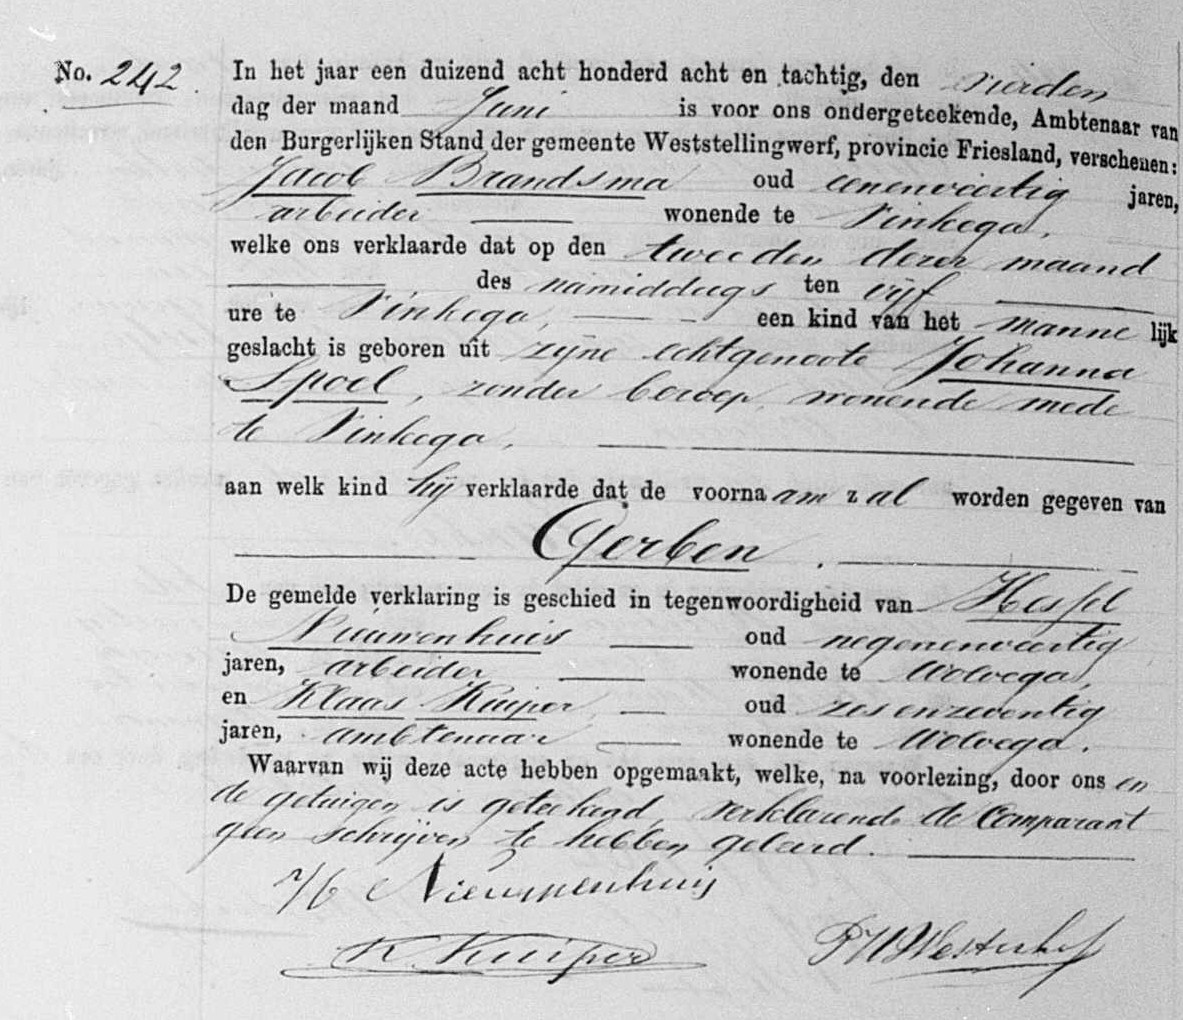 No. 242 In het jaar een duizend acht honderd acht en tachtig, den vierden
dag der maand Juni is voor ons ondergeteekende, Ambtenaar van
den Burgerlijken Stand der gemeente Weststellingwerf, provincie Friesland, verschenen:
Jacob Brandsma oud eenenveertig jaren,
arbeider wonende te Vinkega,
welke ons verklaarde dat op den tweeden dezer maand
des namiddags ten vijf
ure te Vinkega, een kind van het manne lijk
geslacht is geboren uit zijne echtgenoote Johanna
Spoel, zonder beroep, wonende mede
te Vinkega,
aan welk kind hij verklaarde dat de voorna am zal worden gegeven van
Gerben.
De gemelde verklaring is geschied in tegenwoordigheid van Hessel
Nieuwenhuis oud negenenveertig
jaren, arbeider wonende te Wolvega,
en Klaas Kuiper, oud zesenzeventig
jaren, ambtenaar wonende te Wolvega.
Waarvan wij deze acte hebben opgemaakt, welke, na voorlezing, door ons en
de getuigen is geteekend, verklarende de Comparant
geen schrijven te hebben geleerd.
H Nieuwenhuis
K Kuiper Westerhof